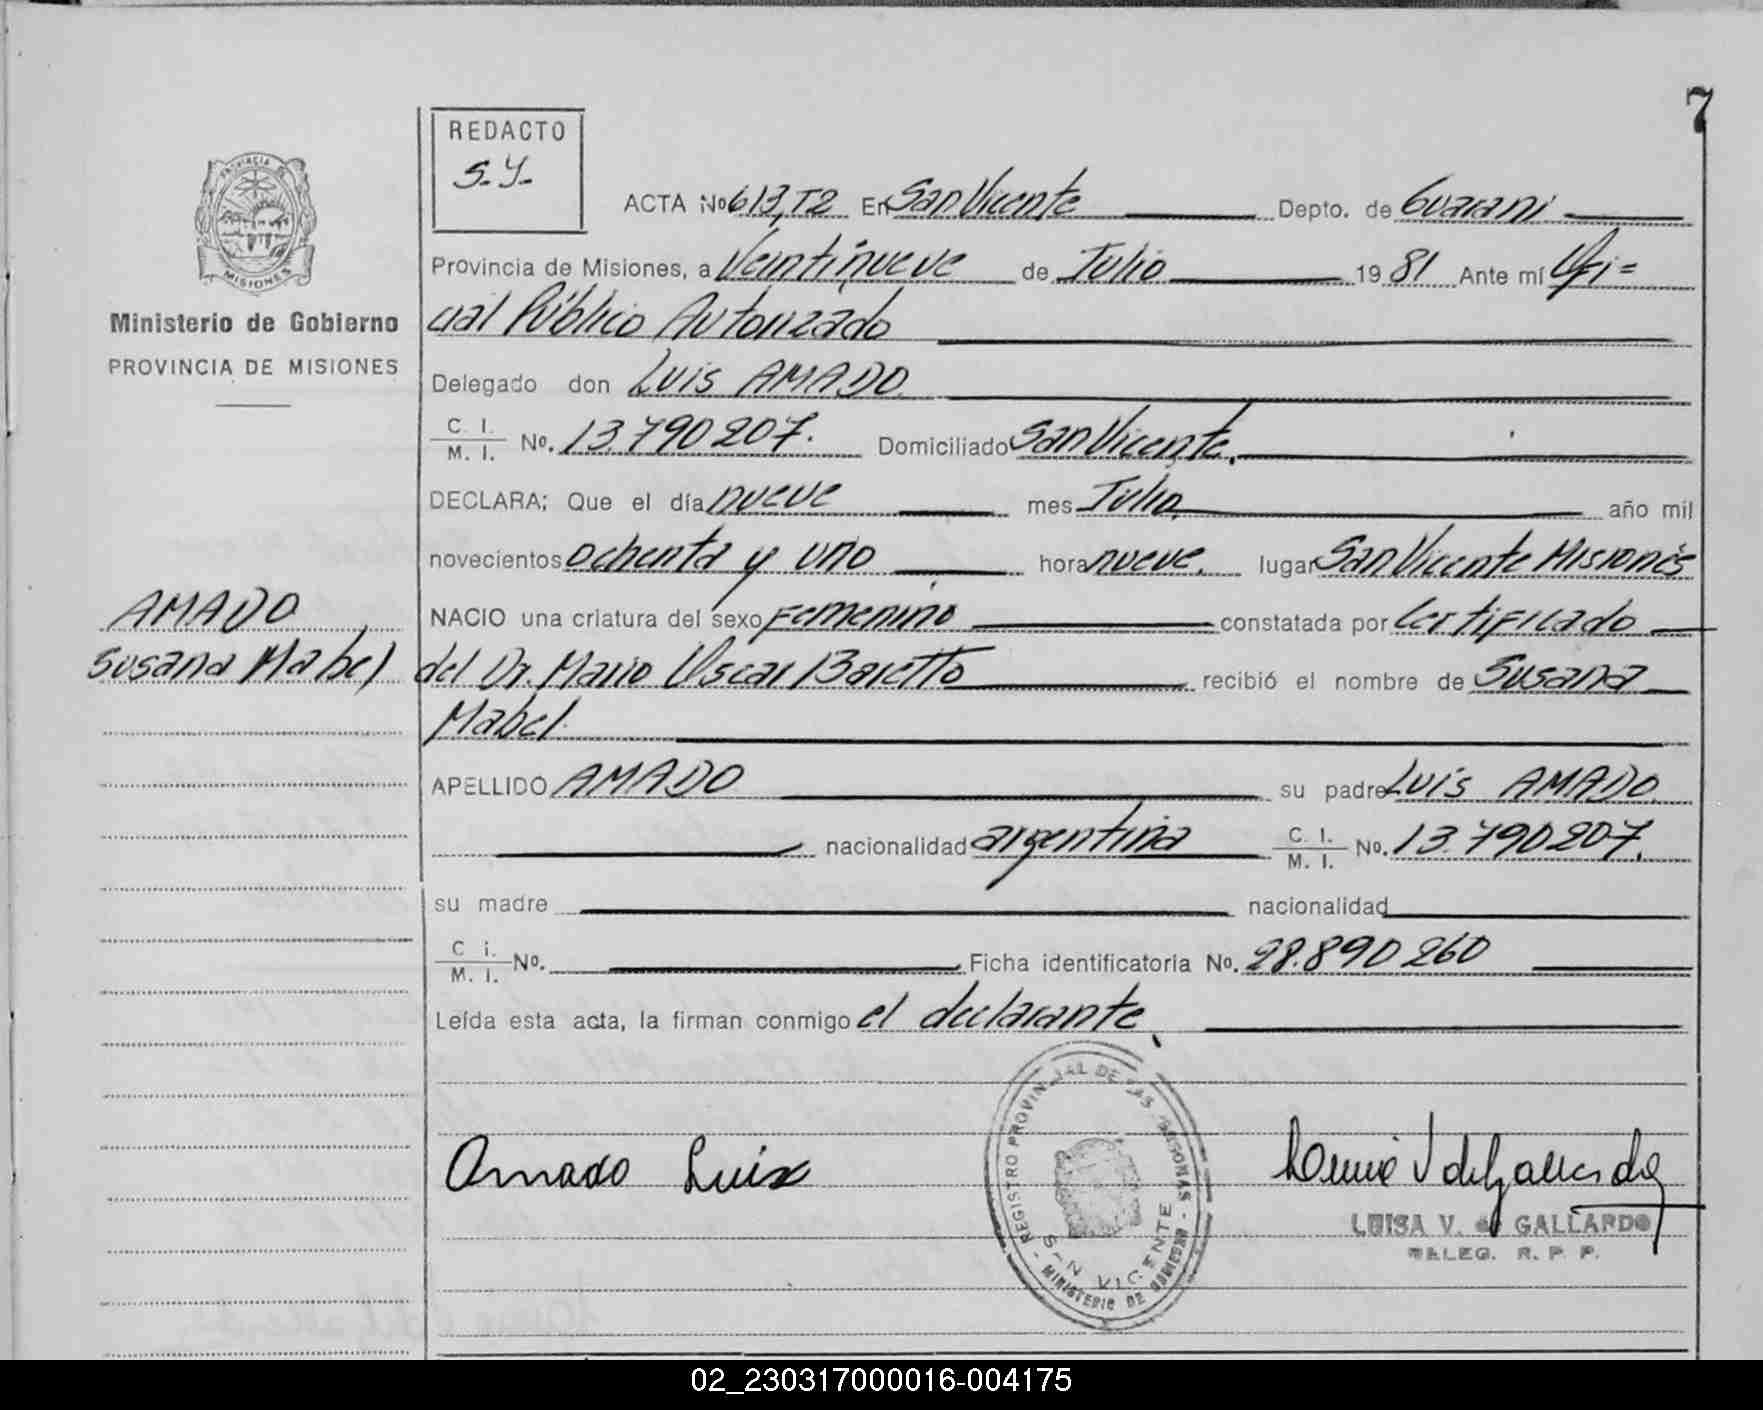 7
REDACTO
S.Y.
PROVINCIA DE
MISIONES
Ministerio de Gobierno
PROVINCIA DE MISIONES
ACTA No 613, T2 En San Vicente Depto. de Guarani
Provincia de Misiones, a Veintinueve de Julio 19 81 Ante mí Ofi=
cial Público Autorizado
Delegado don Luis AMADO.
C. I. / M. I. No. 13.790207. Domiciliado San Vicente.
DECLARA; Que el día nueve mes Julio. año mil
novecientos ochenta y uno hora nueve. lugar San Vicente Misiones
NACIO una criatura del sexo Femenino constatada por Certificado
del Dr. Mario Oscar Baretto recibió el nombre de Susana
Mabel.
AMADO
Susana Mabel
APELLIDO AMADO su padre Luis AMADO
nacionalidad argentina C. I. / M. I. No. 13.790207.
su madre nacionalidad
C i. / M. I. No. Ficha identificatoria No. 28.890260
Leída esta acta, la firman conmigo el declarante.
Amado Luis
REGISTRO PROVINCIAL DE LAS PERSONAS
SAN VICENTE
MINISTERIO DE GOBIERNO
LUISA V. de GALLARDO
DELEG. R. P. P.
02_230317000016-004175